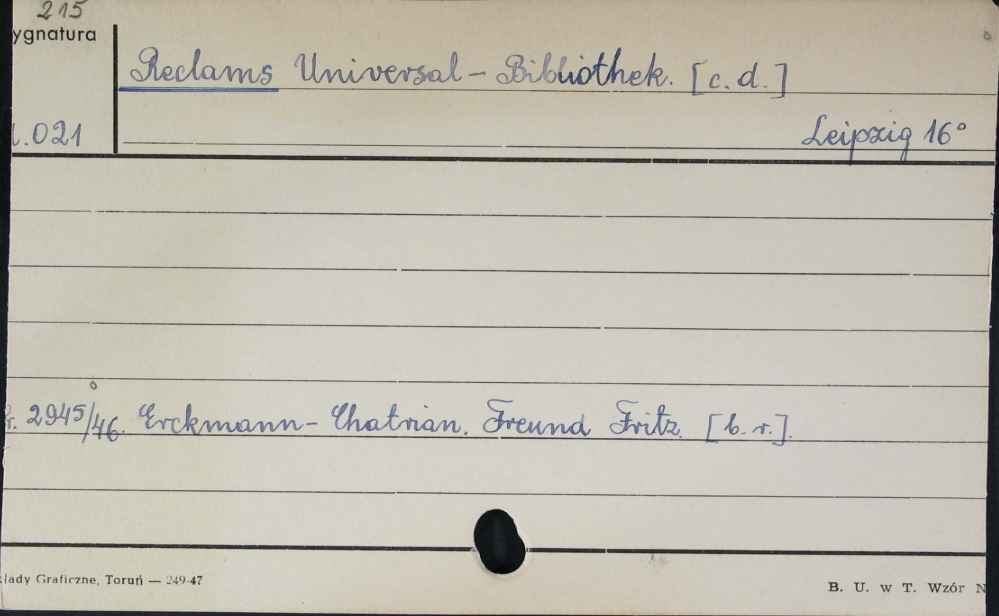 215
ygnatura
Reclams Universal-Bibliothek. [c.d.]
.021
Leipzig 16°
r. 2945/46. Erckmann-Chatrian. Freund Fritz. [b.r.].
łady Graficzne, Toruń — 249-47
B. U. w T. Wzór N